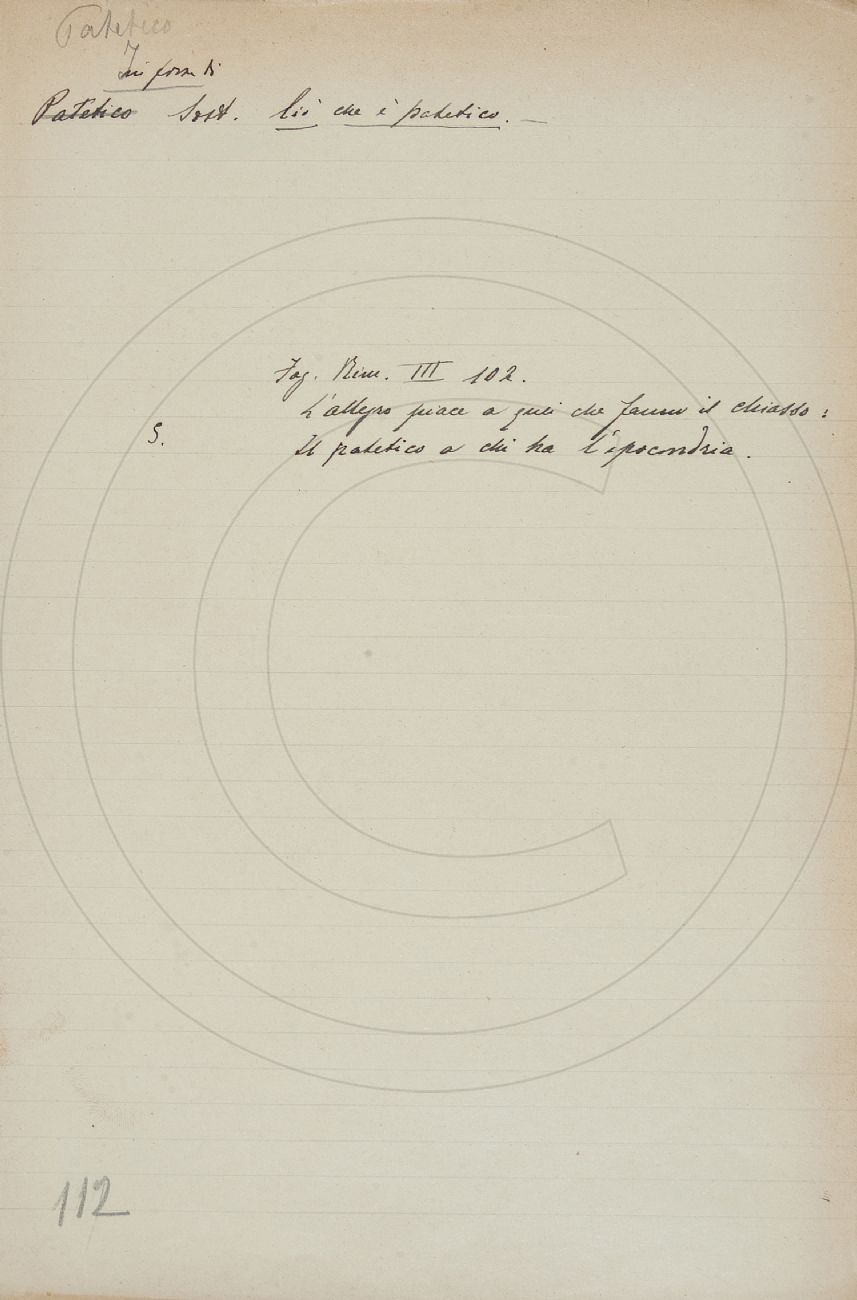 Patetico
In forza di
Patetico Sost. Ciò che è patetico. —
Fag. Rim. III 102.
L'allegro piace a quei che fanno il chiasso:
S.
Il patetico a chi ha l'ipocondria.
112